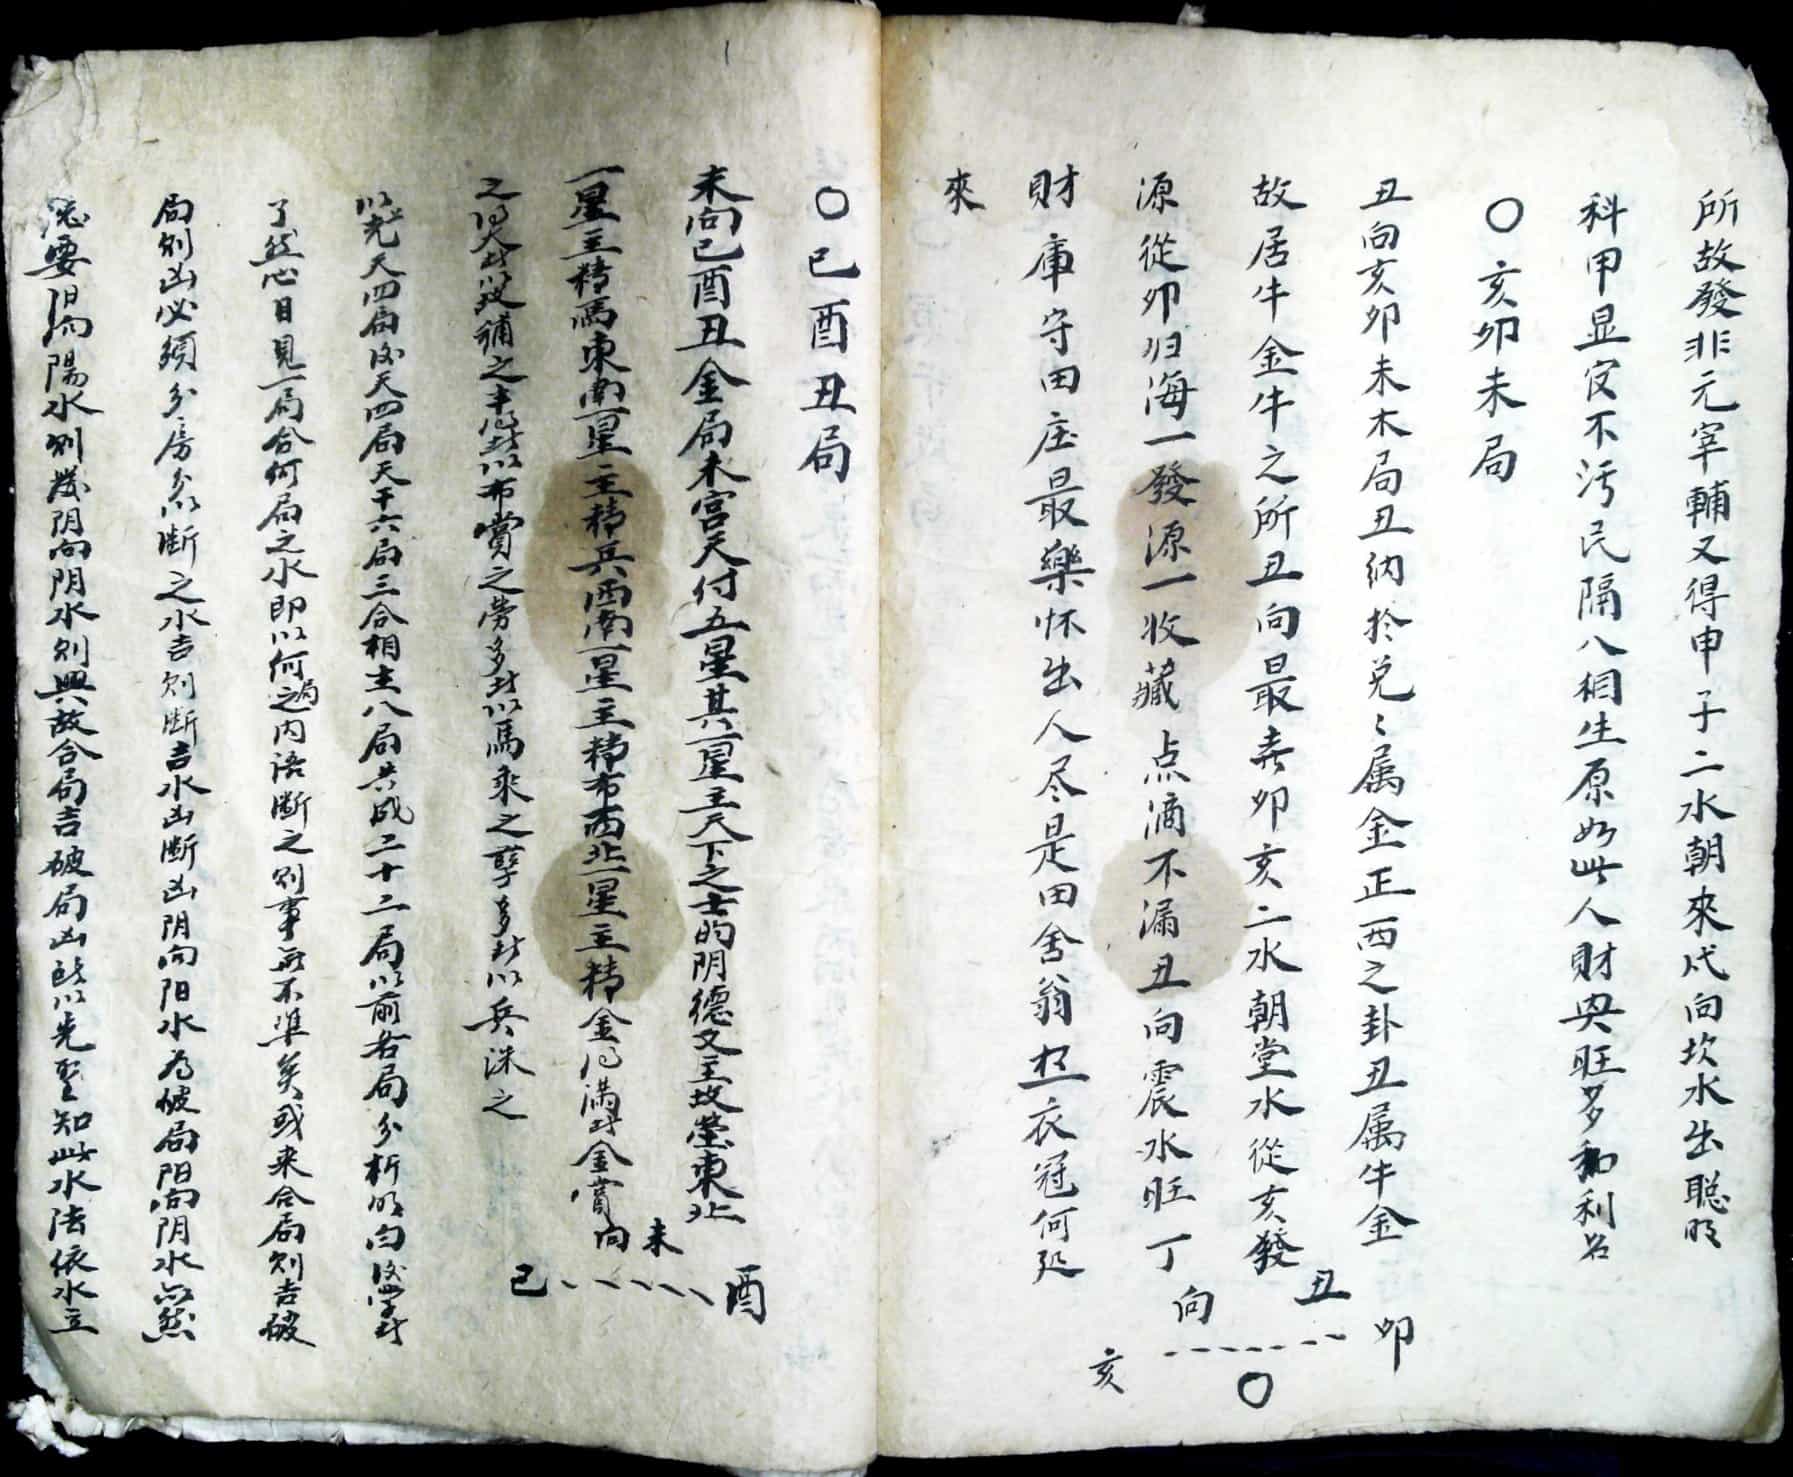 所故發非元宰輔又得申子二水朝來戌向坎水出聪明
科甲显官不污民隔八相生原如此人財興旺多和利名
〇亥卯未局
丑向亥卯未木局丑納於兑〻属金正西之卦丑属牛金
故居牛金牛之所丑向最寿卯亥二水朝堂水從亥發
源從卯归海一發源一收藏点滴不漏丑向震水旺丁
財庫守田庄最樂怀出人尽是田舍翁 衣冠何処
來
丑
向
卯
亥
〇
〇巳酉丑局
未向巳酉丑金局未宫天付五星其一星主天下之士的阴德文王坟塋東北
一星主精馬東南一星主精兵西南一星主精布西北一星主精金 滿 金賞
之 以 補之 以布賞之勞多 以馬乘之孽多 以兵洙之
未
向
酉
巳
以先天四局後天四局天干六局三合相主八局共成二十二局以前各局分析明白後学
了然心目見一局合何局之水即以何局之内语斷之则事無不準矣或来合局则吉破
局则凶必須分房分以斷之水吉则斷吉水凶斷凶阴向阳水為破局阳向阴水亦然
總要阳向陽水则發阴向阴水则興故合局吉破局凶 以先聖知此水法依水立